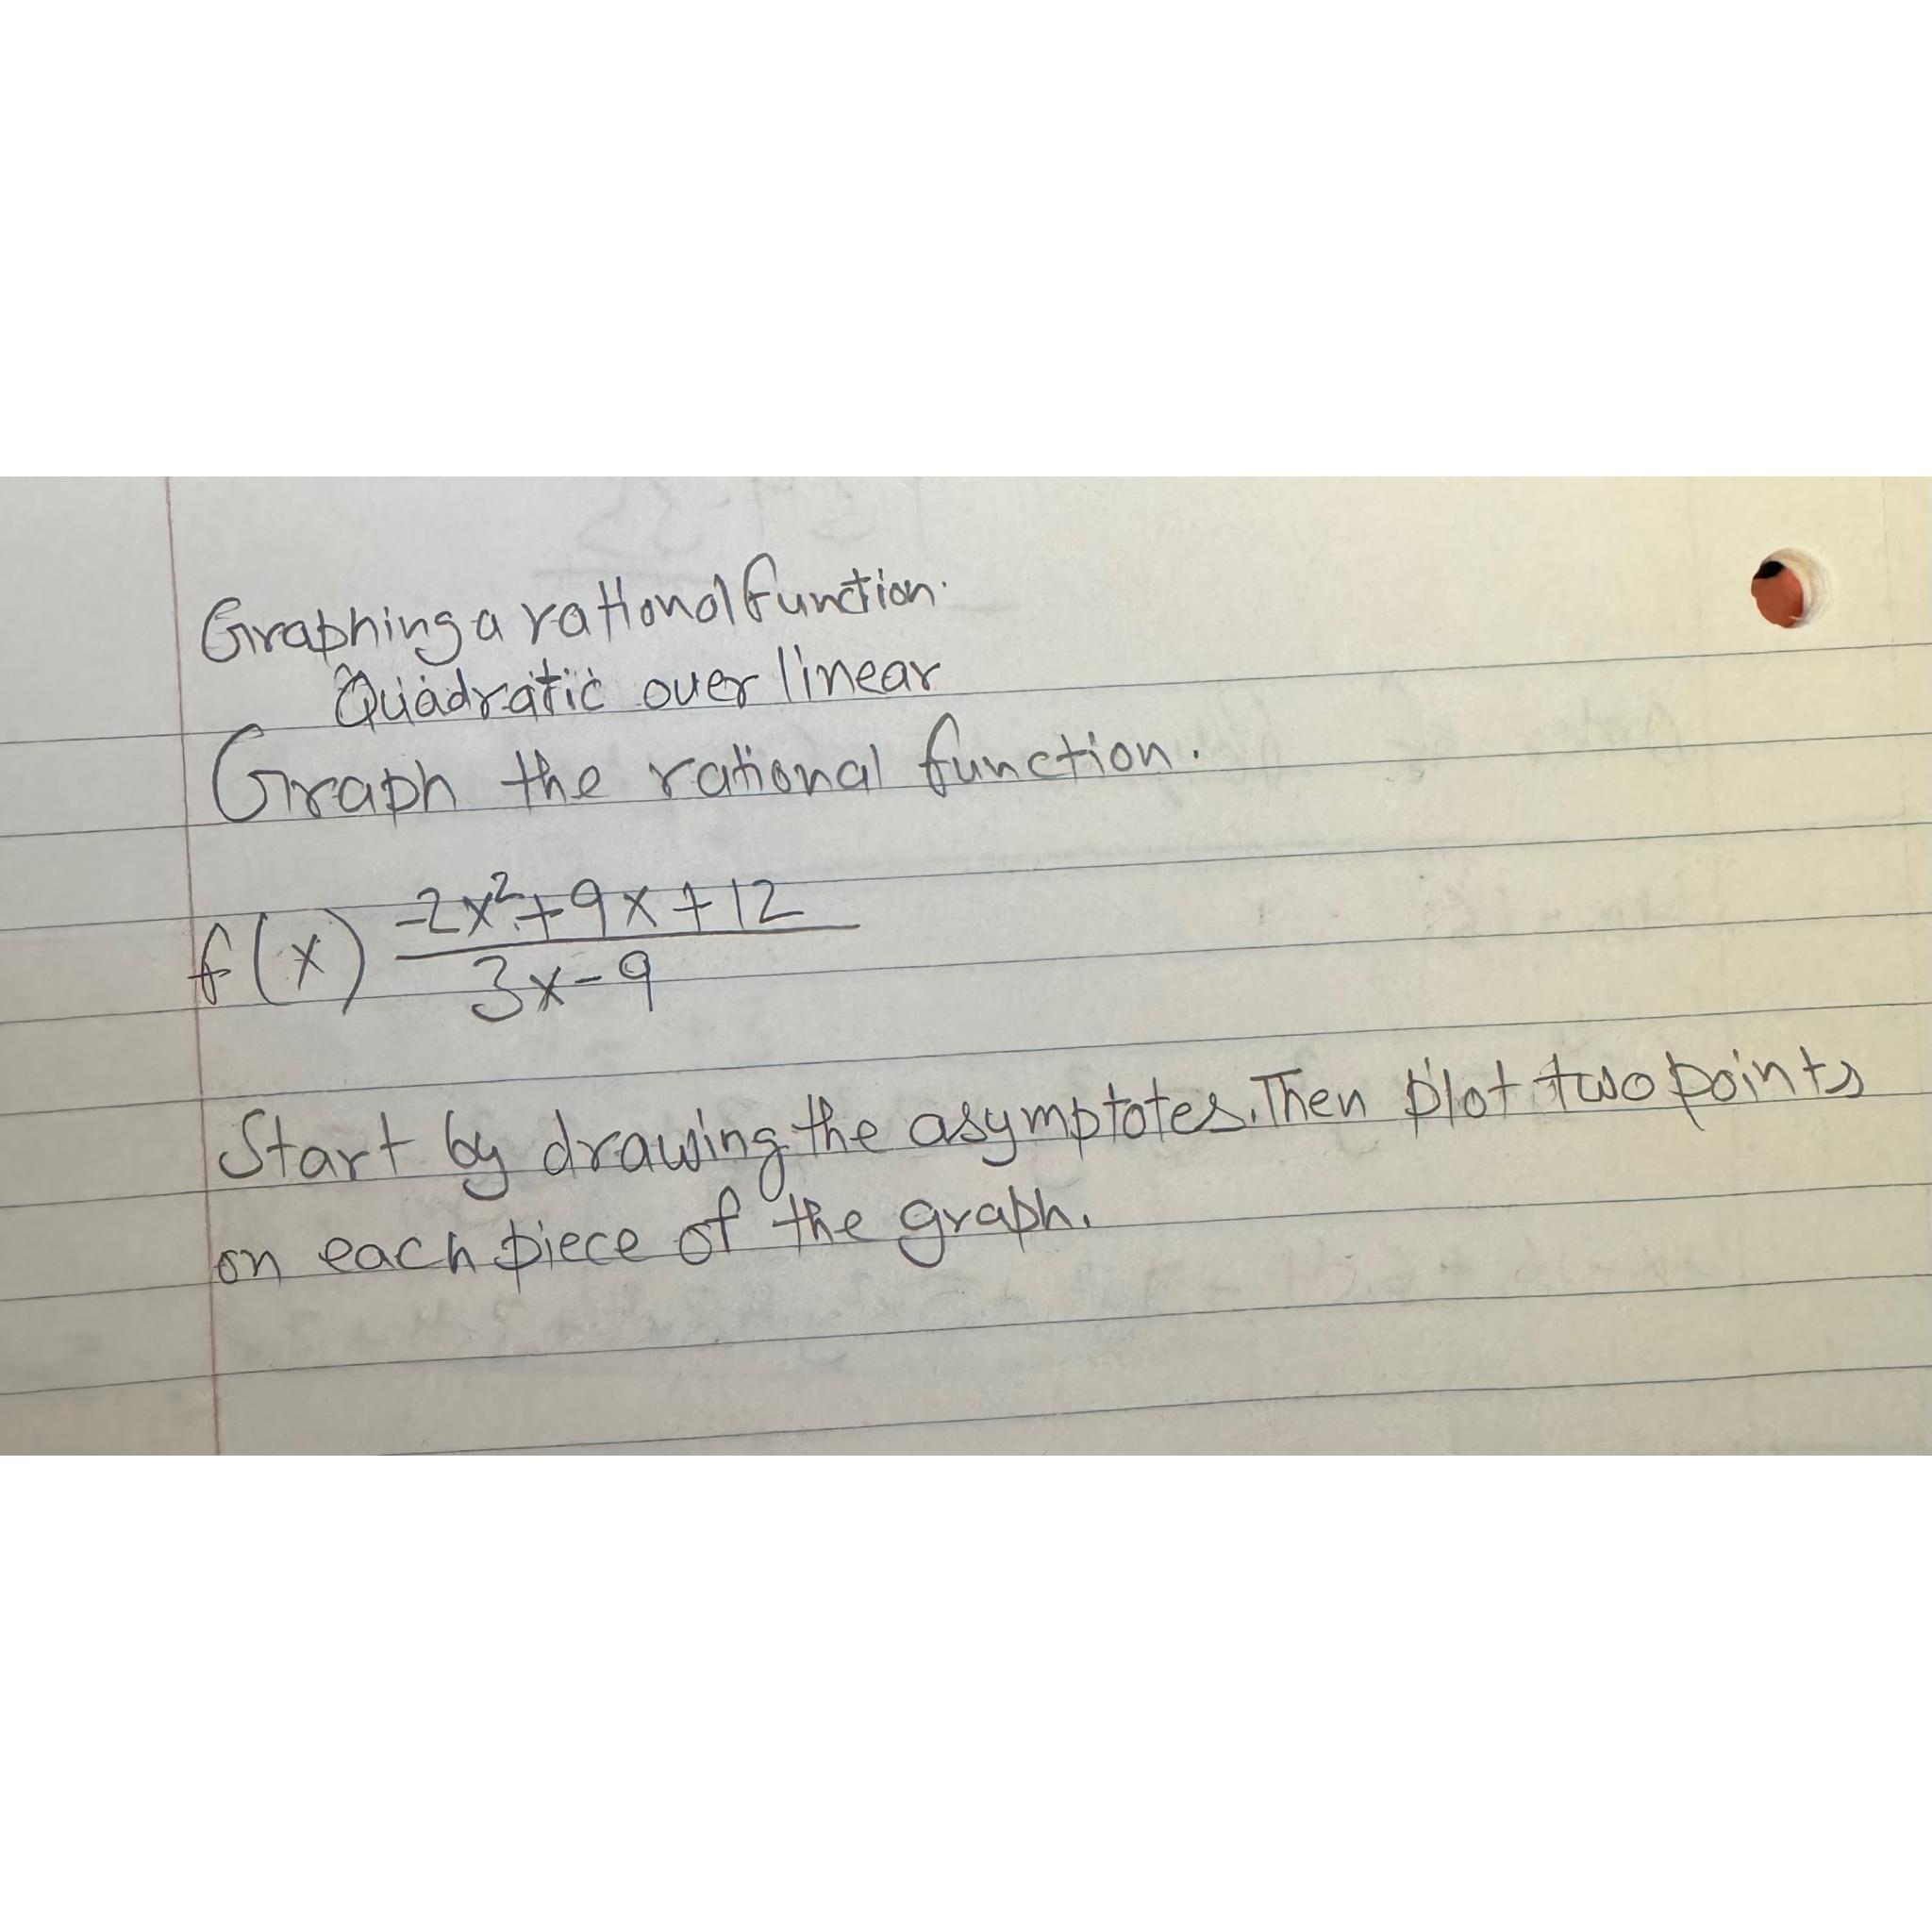 Graphing a rational function.
Quadratic over linear
Graph the rational function.
f(x) -2x²+9x+12
3x-9
Start by drawing the asymptotes. Then plot two points
on each piece of the graph.